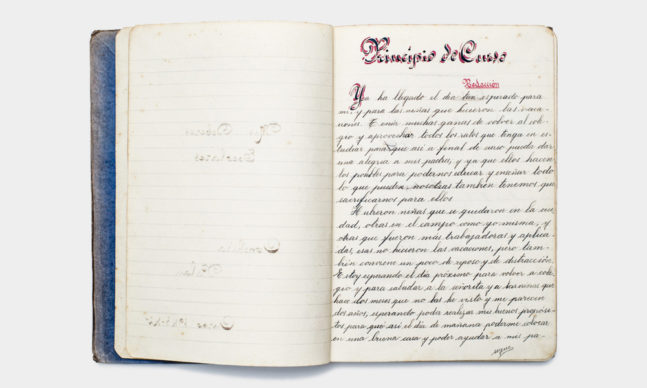 Principio de Curso
Redacción
Ya ha llegado el día tan esperado para
mi y para las niñas que hicieron las vaca-
ciones. Tenía muchas ganas de volver al cole-
gio y aprovechar todos los ratos que tenga en es-
tudiar porque que así a final de curso pueda dar
una alegria a mis padres, y ya que ellos hacen
los posible para podernos educar y enseñar todo
lo que pueden, nosotras también tenemos que
sacrificarnos para ellos.
Hubieron niñas que se quedaron en la ciu-
dad, otras en el campo como yo misma, y
otras que fueron más trabajadoras y aplica-
das, esas no hicieron las vacaciones, pero tam-
bién conviene un poco de reposo y de distracción.
Estoy esperando el día próximo para volver a cole-
gio y para saludar a la señorita y a las niñas que
hace dos meses que no las he visto y me parecen
dos años, esperando poder realizar mis buenos proposi-
tos para que así el día de mañana poderme colocar
en una buena casa y poder ayudar a mis pa-
sigue